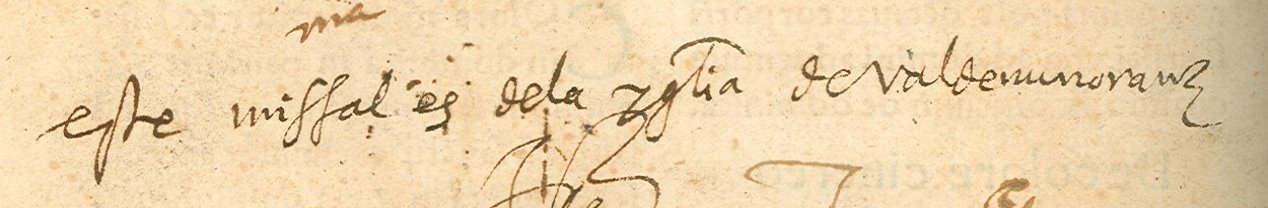 ma
este missal es dela yglia de Valdenunoranz